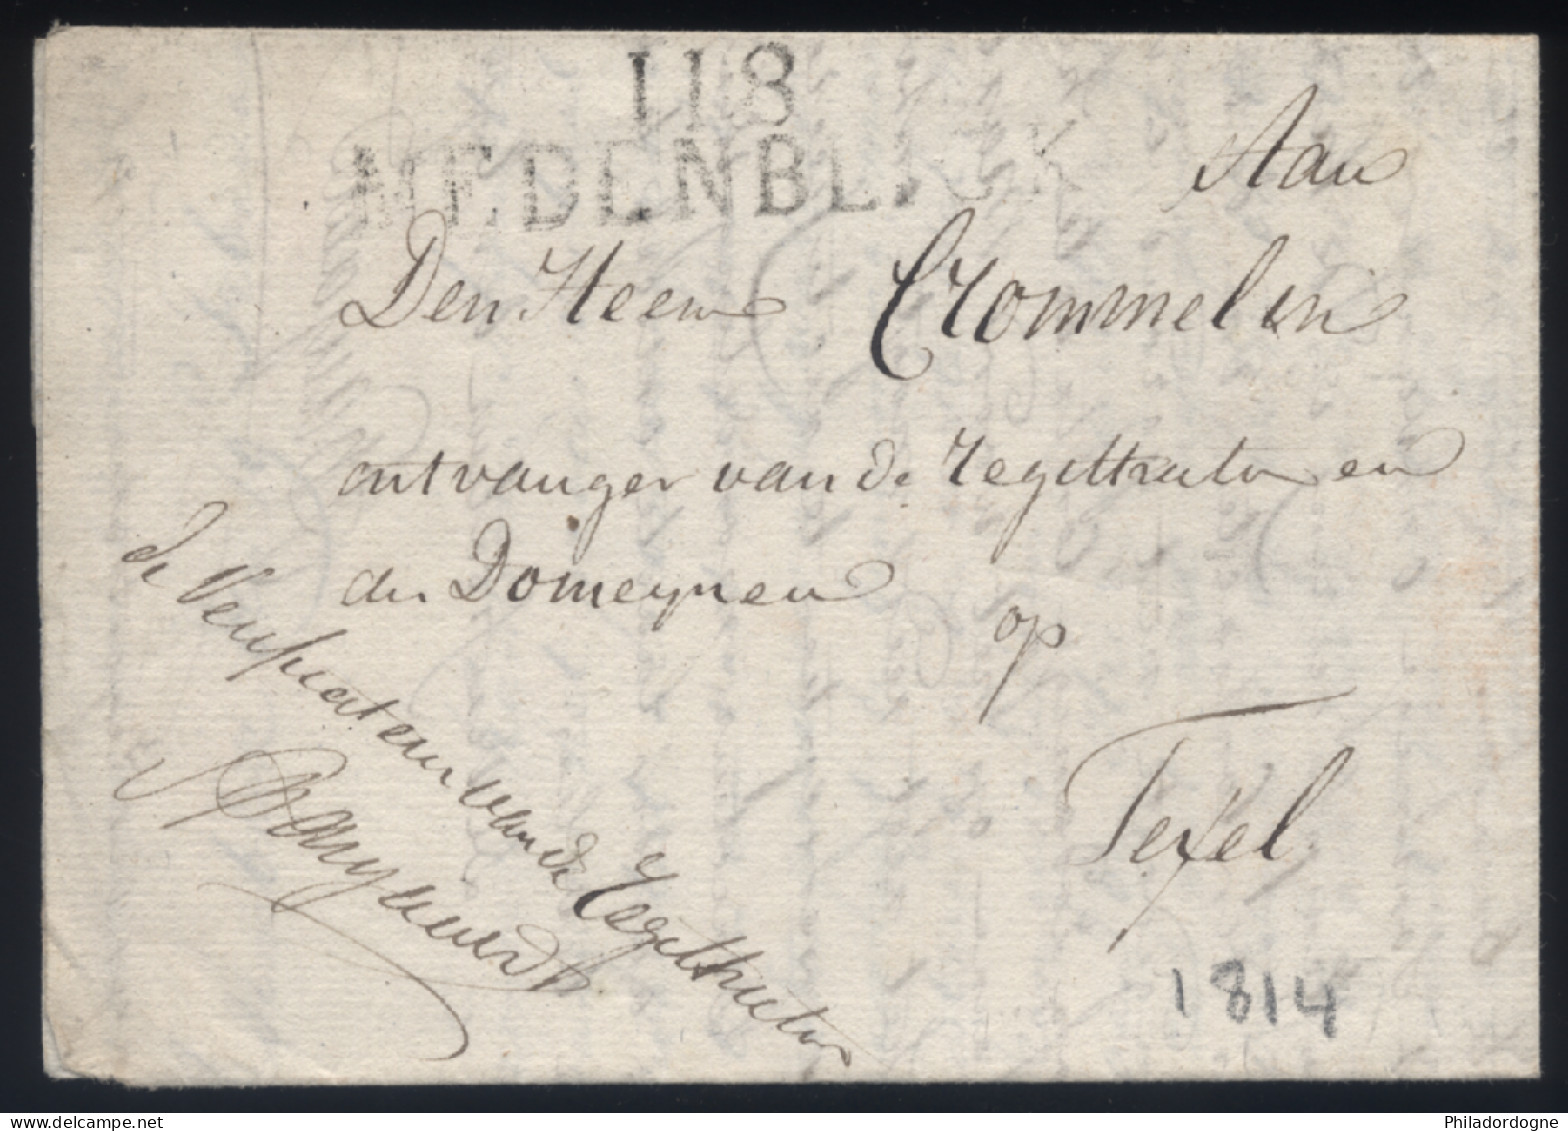 118
MEDENBLICK
Aan
Den Heere Crommelin
ontvanger van de registratie en
der Domeynen
op
Texel
de Verificateur van de registratie
1814
Philadordogne